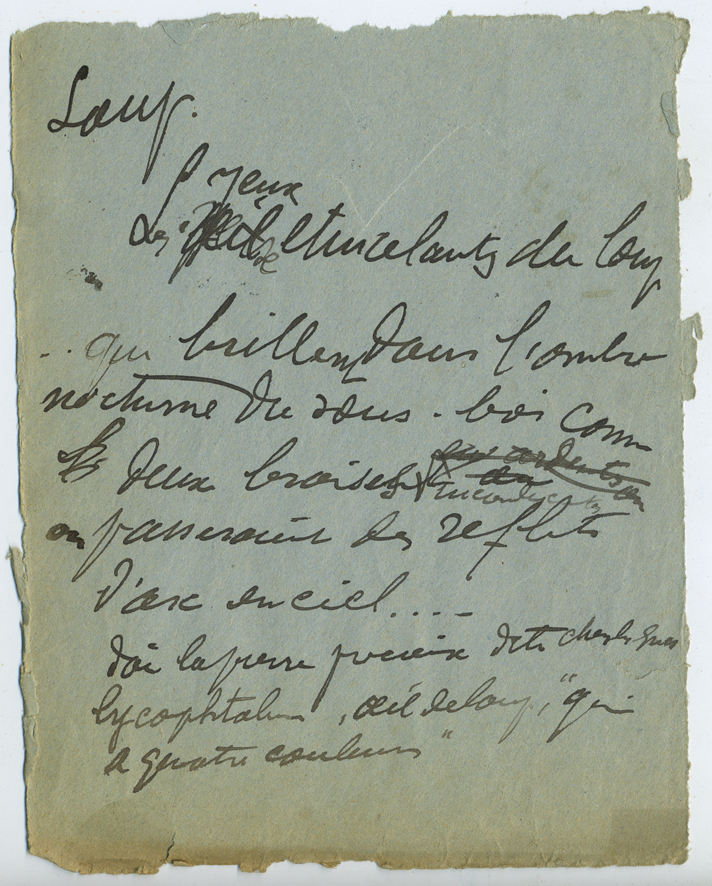 Loup.
yeux
Les étincelants du loup
.. qui brillent dans l'ombre
nocturne du sous-bois comm
deux braises incandescentes
ou passeraient des reflets
d'arc en ciel....
d'où la pierre précieuse dite chez les Grecs
lycophtalme, "œil de loup", "qui
a quatre couleurs"